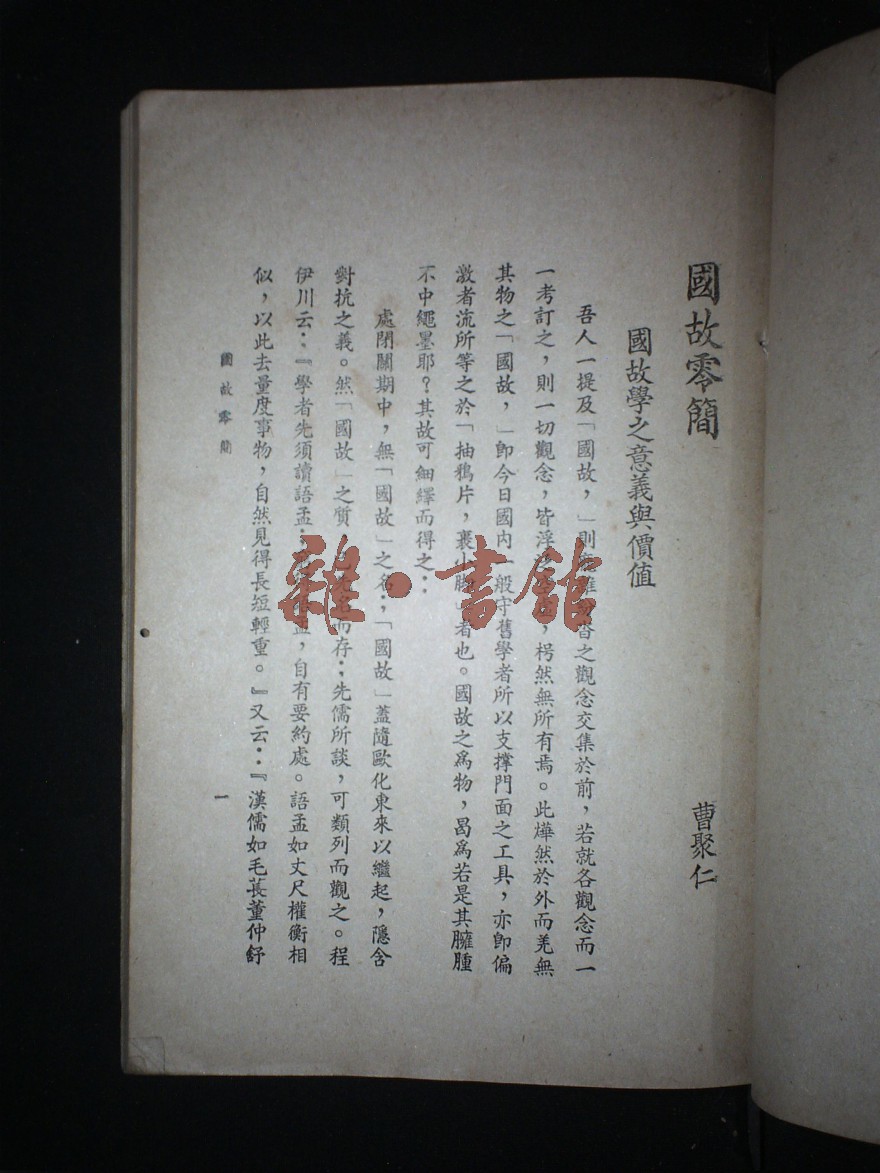 國故零簡
曹聚仁
國故學之意義與價值
吾人一提及「國故，」則 之觀念交集於前，若就各觀念而一
一考訂之，則一切觀念，皆浮 ，枵然無所有焉。此燁然於外而羌無
其物之「國故，」卽今日國內一般守舊學者所以支撐門面之工具，亦卽偏
激者流所等之於「抽鴉片，裹小脚」者也。國故之爲物，曷爲若是其臃腫
不中繩墨耶？其故可細繹而得之：
處閉關期中，無「國故」之名；「國故」蓋隨歐化東來以繼起，隱含
對抗之義。然「國故」之質， 而存；先儒所談，可類列而觀之。程
伊川云：『學者先須讀語孟； 孟，自有要約處。語孟如丈尺權衡相
似，以此去量度事物，自然見得長短輕重。』又云：『漢儒如毛萇董仲舒
國故零簡
一
雜·書館